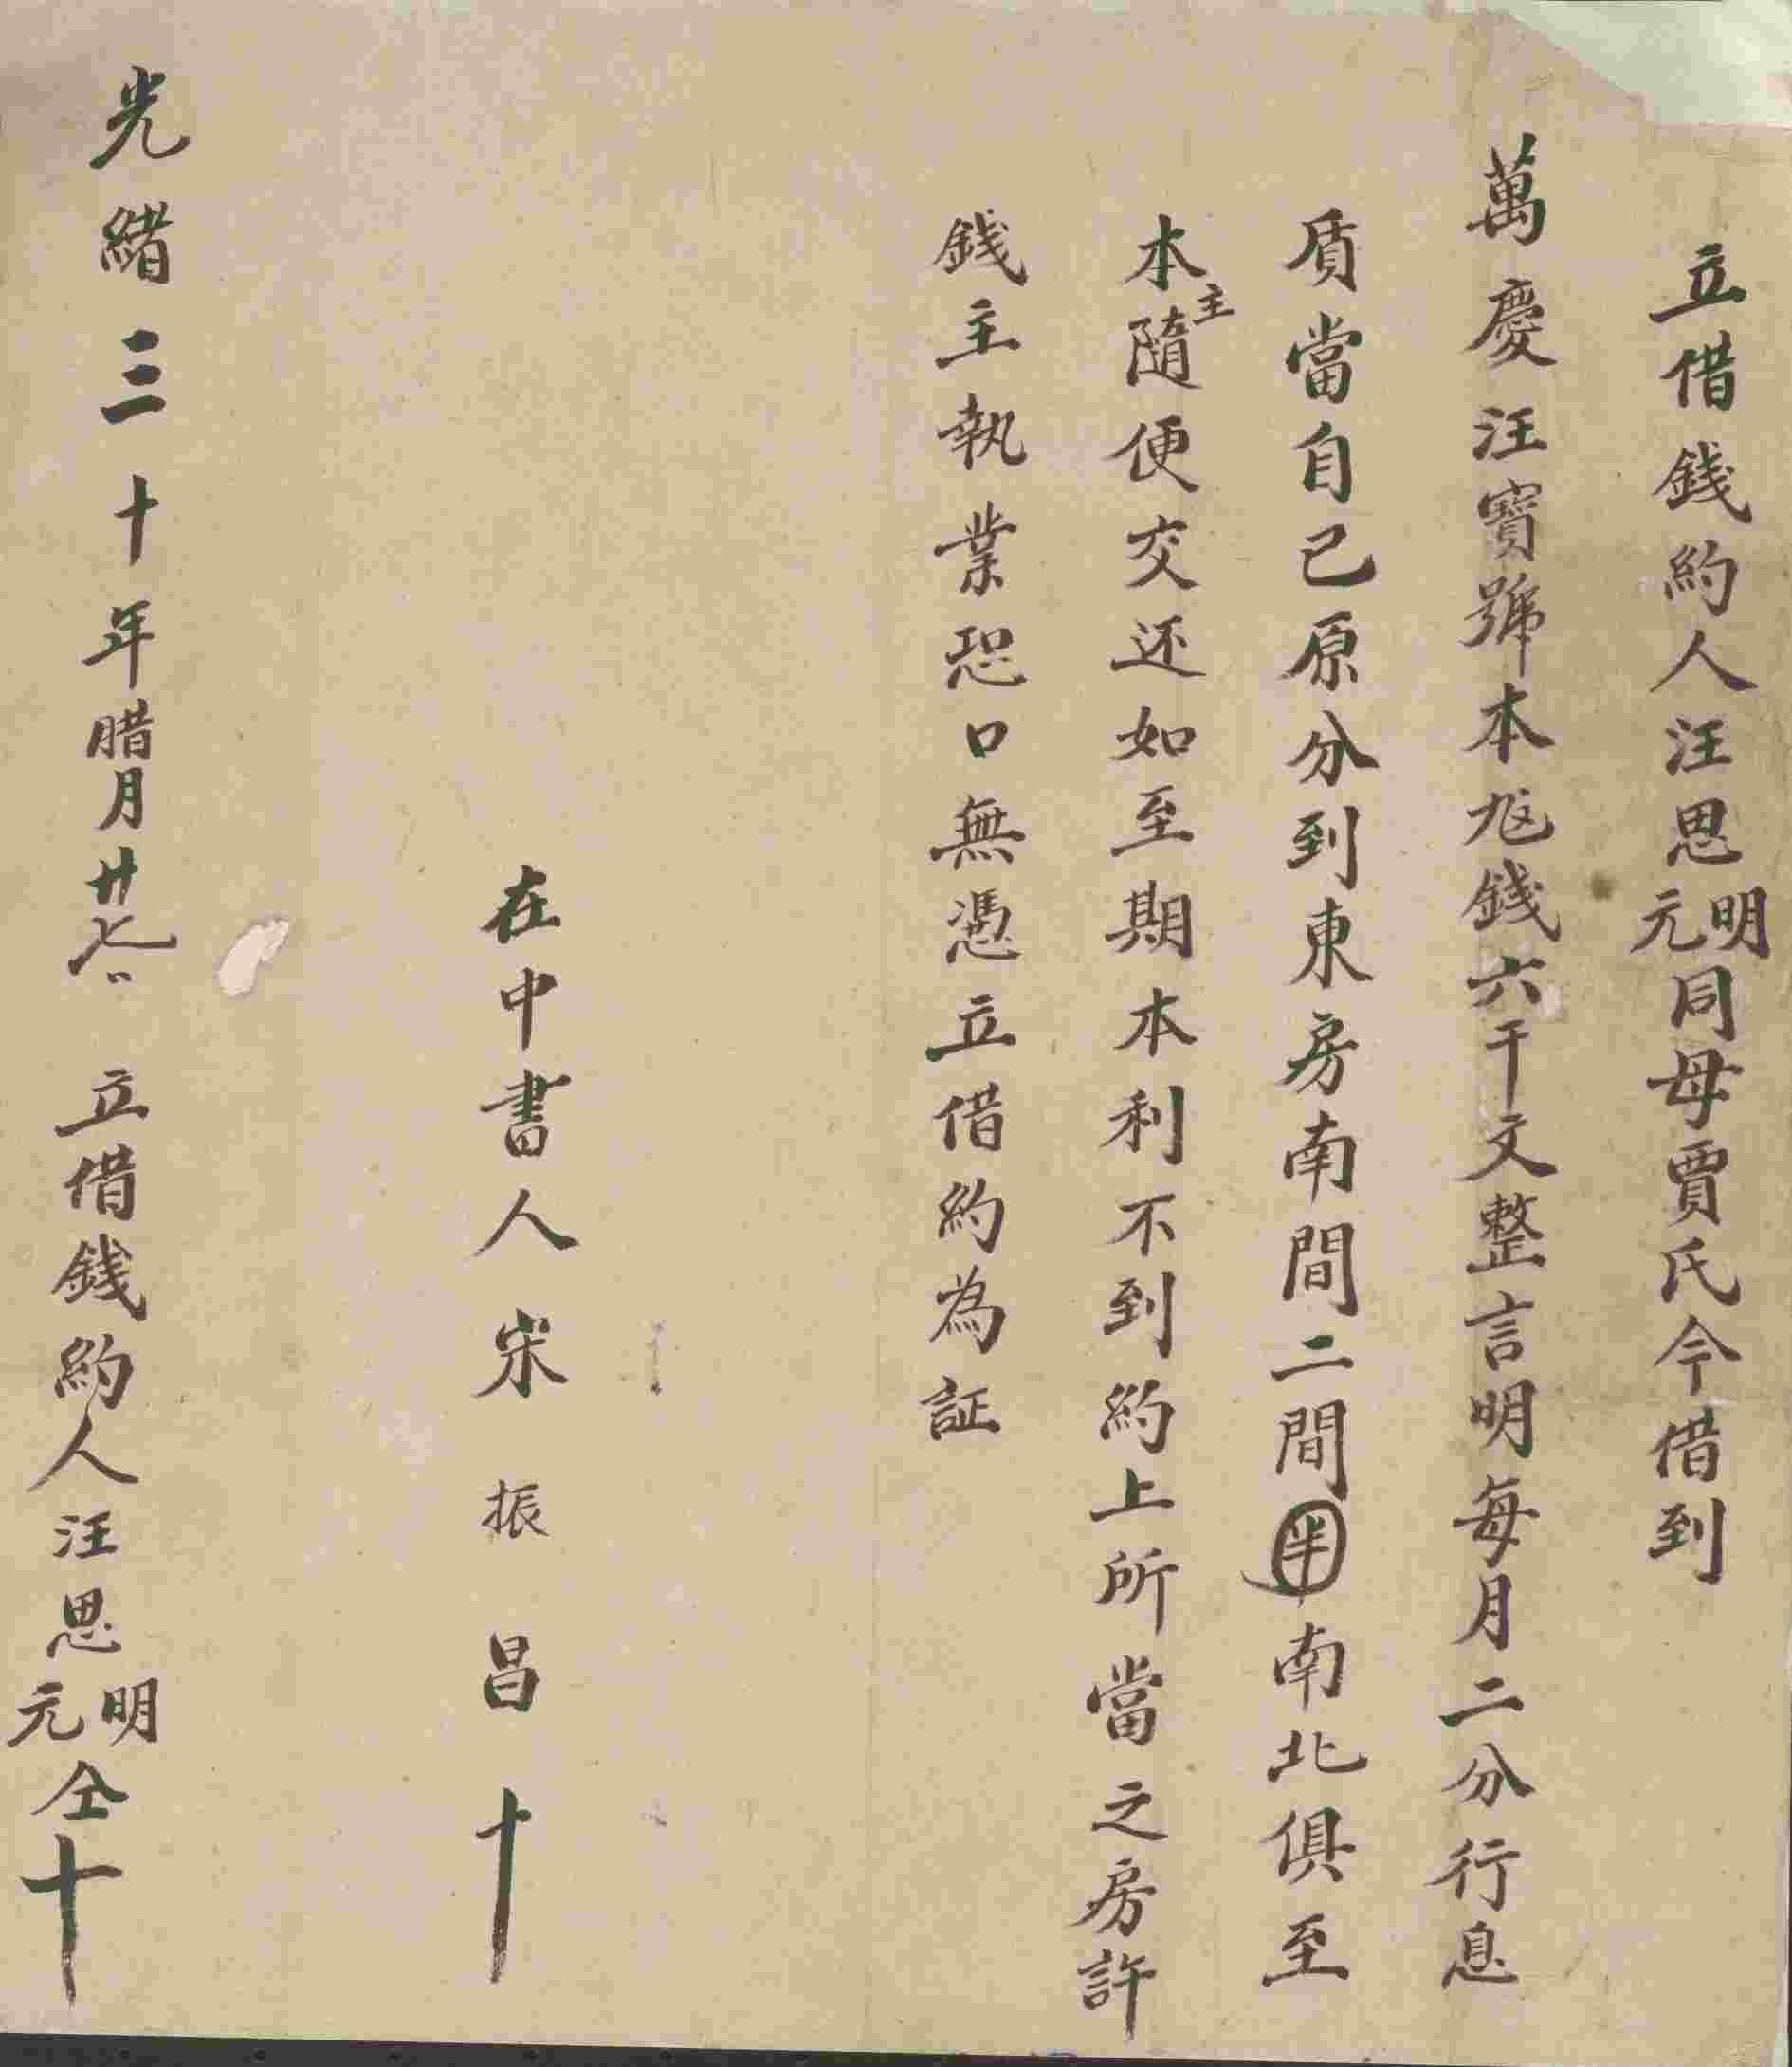 立借錢約人汪思明元同母賈氏今借到
萬慶汪寶號本尩錢六千文整言明每月二分行息
質當自己原分到東房南間二間半南北俱至
本主隨便交还如至期本利不到約上所當之房許
錢主執業恐口無憑立借約為証
在中書人宋振昌十
光緒三十年腊月廿七日 立借錢約人汪思明元仝十